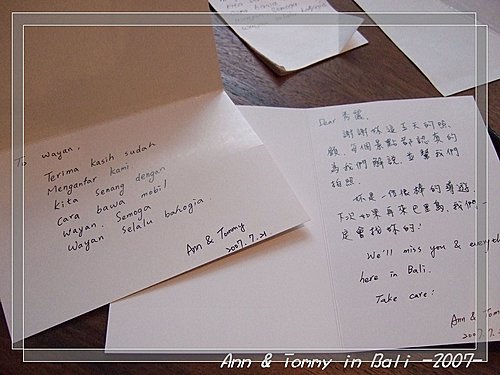 To Wayan,
Terima kasih sudah
Mengantar kami.
Kita senang dengan
cara bawa mobil
Wayan. Semoga
Wayan selalu bahagia.
Ann & Tommy
2007.7.21
Dear 秀
謝謝妳這五天的照
顧,每個景點都認真的
為我們解說,並幫我們
拍照.
妳是一個很棒的導遊,
下次如果再來巴里島,我們一
定會找妳的!
We'll miss you &
here in Bali.
Take care!
Ann &
2007.7.21
Ann & Tommy in Bali -2007-